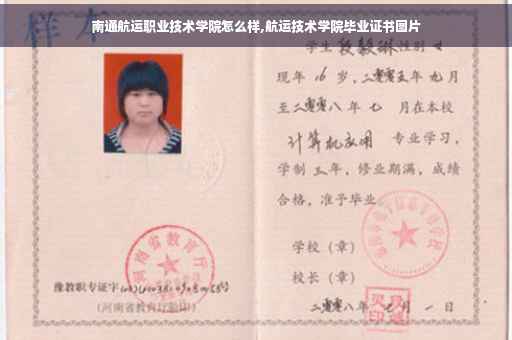 南通航运职业技术学院怎么样,航运技术学院毕业证书图片
样本
学生段毅琳性别女
现年16岁,二零零五年九月
至二零零八年七月在本校
计算机应用 专业学习,
学制三年,修业期满,成绩
合格,准予毕业
学校(章)
校长(章)
二零零八年七月一日
河南省教育厅
豫教职专证字
(河南省教育厅验印)